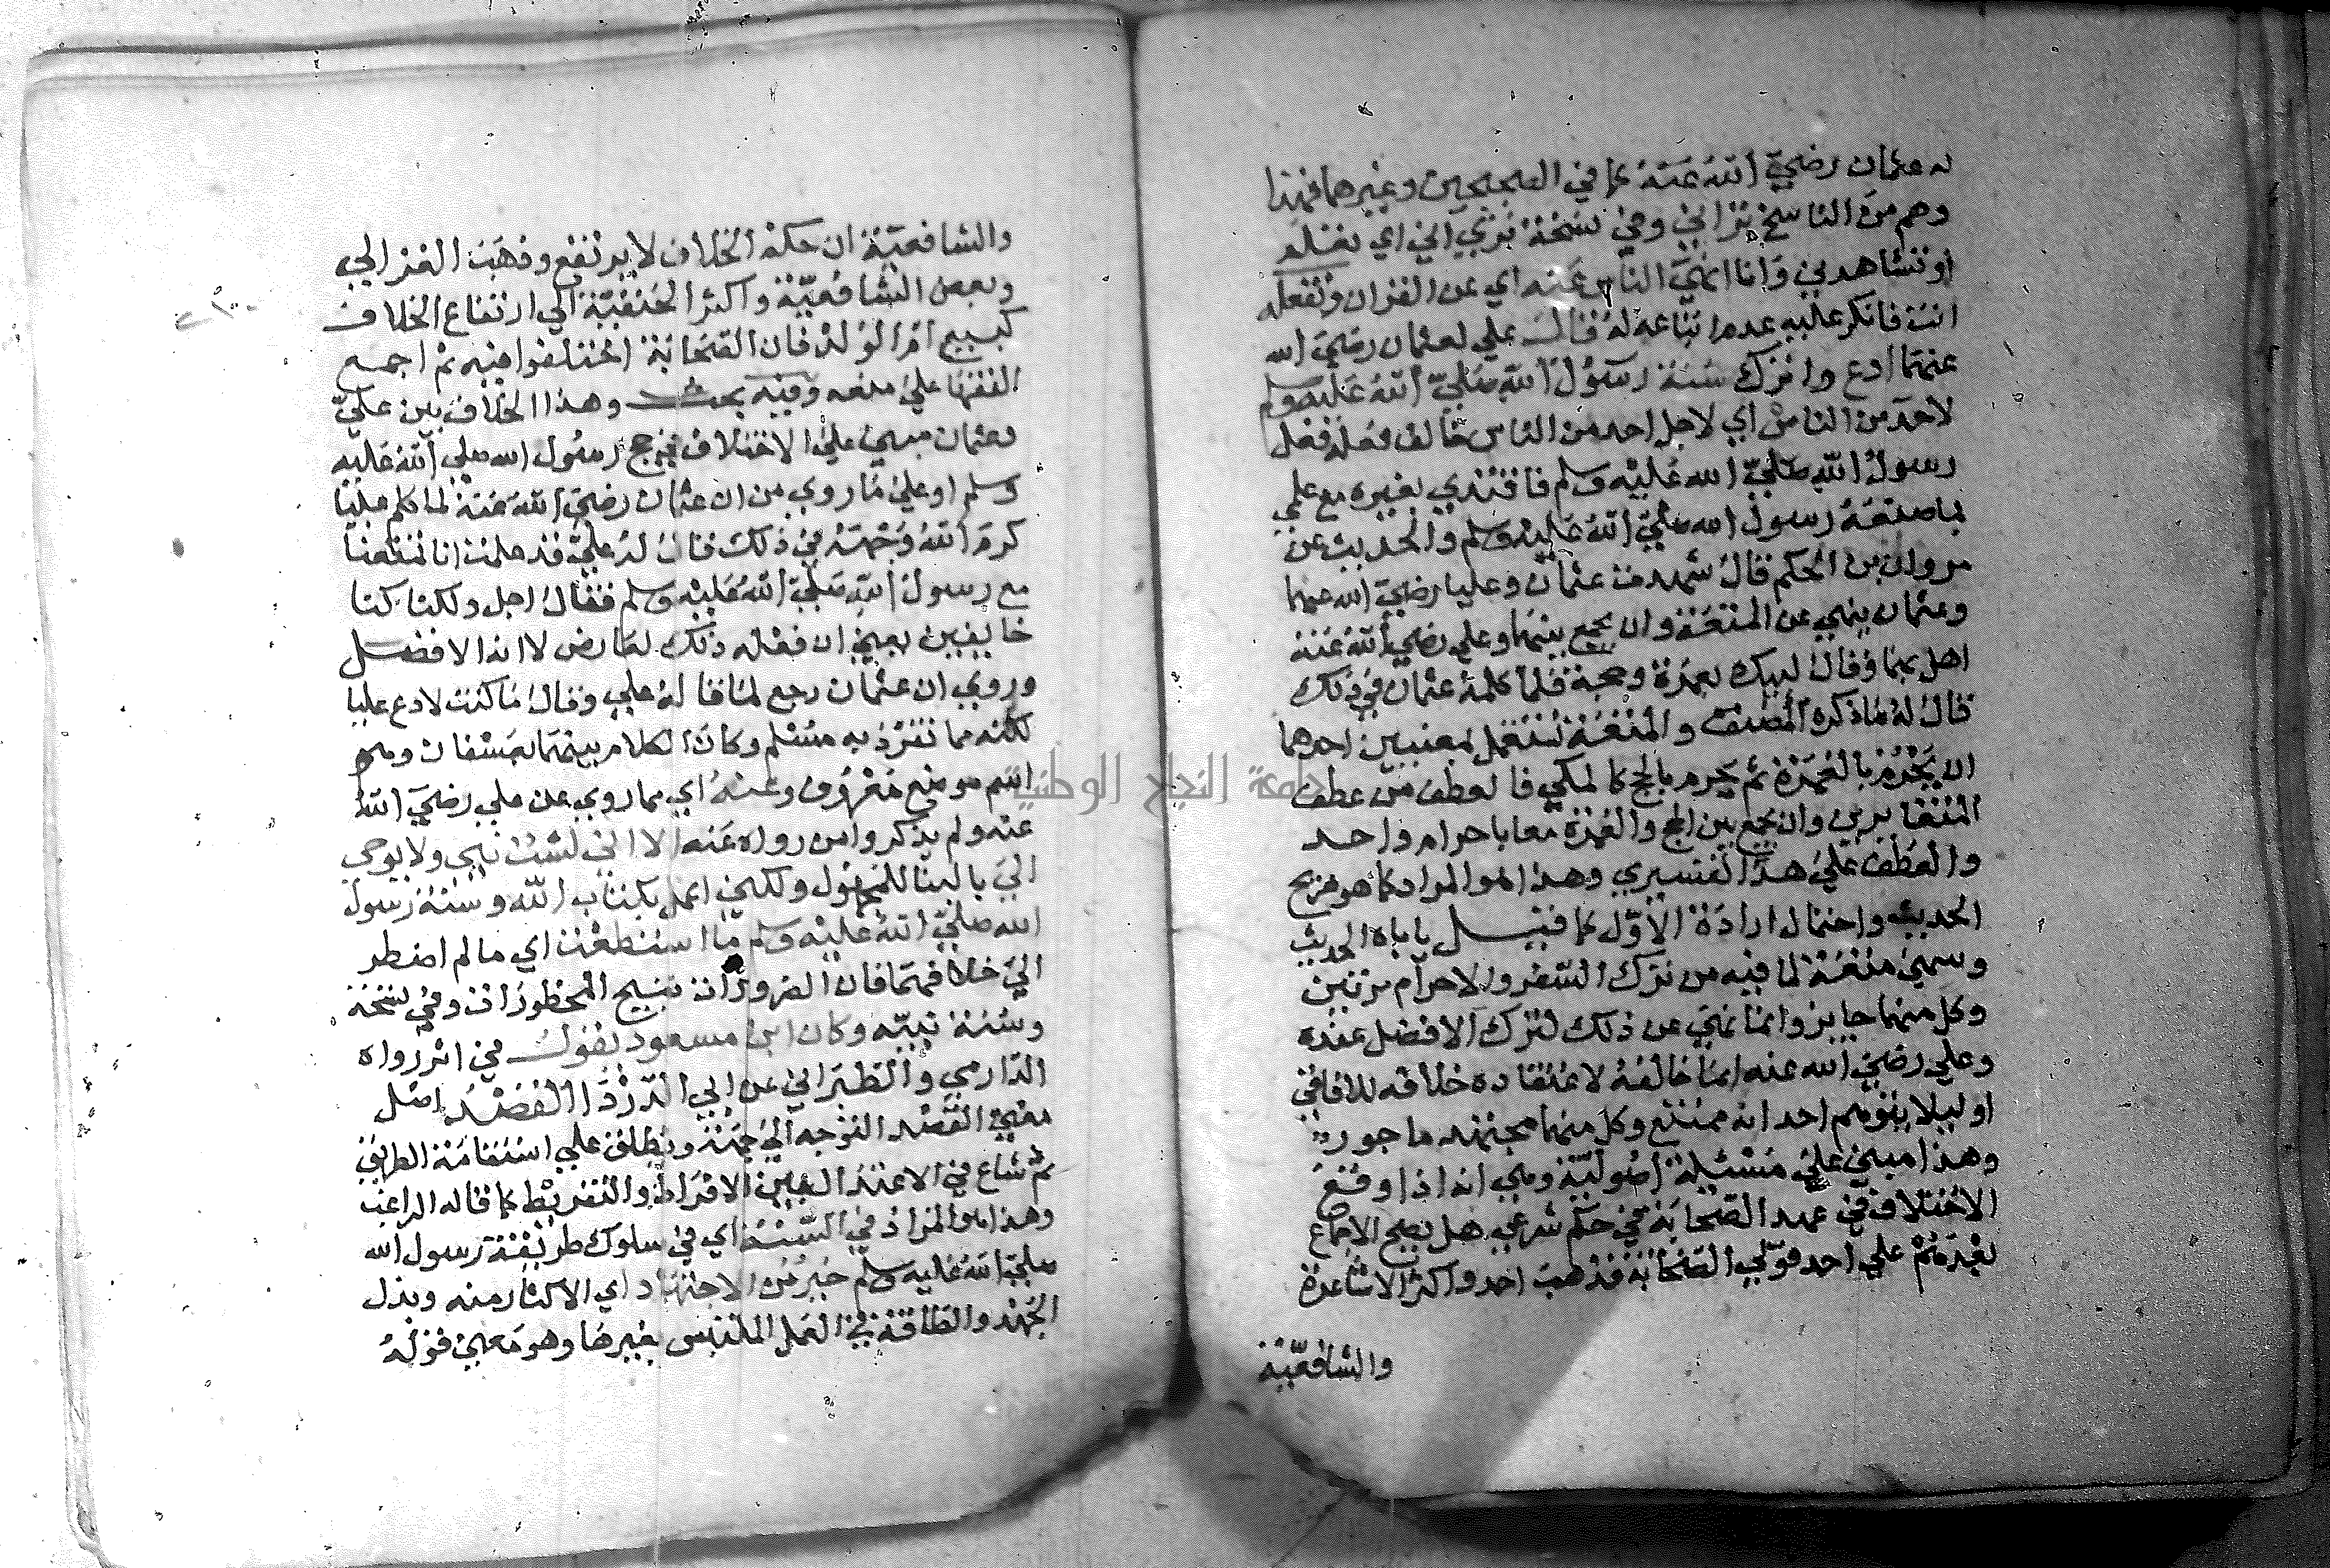 له عثمان رضي الله عنه كما في الصحيحين وغيرهما فهذا
وهم من الناسخ تراني وفي نسخة ترى اني اي تعلم
او تشاهدني وانا انهى الناس عنه اي عن القران وتفعله
انت فانكر عليه عدم اتباعه له فقال علي لعثمان رضي الله
عنهما ادع واترك سنة رسول الله صلى الله عليه وسلم
لاحد من الناس اي لاجل احد من الناس خالف فعله فعل
رسول الله صلى الله عليه وسلم فاقتدي بغيره مع علمي
بما صنعه رسول الله صلى الله عليه وسلم والحديث عن
مروان بن الحكم قال شهدت عثمان وعليا رضي الله عنهما
وعثمان ينهي عن المتعة وان يجمع بينهما وعلي رضي الله عنه
اهل بهما وقال لبيك بعمرة وحجة فلما كلمه عثمان في ذلك
قال له ما ذكره المصنف والمتعة تستعمل بمعنيين احدهما
ان يحرم بالعمرة ثم يحرم بالحج كالمكي فالعطف من عطف
المتغايرين وان يجمع بين الحج والعمرة معا باحرام واحد
والعطف على هذا تفسيري وهذا هو المراد كما هو صريح
الحديث واحتمال ارادة الاول كما قيل ياباه الحديث
وسمي متعة لما فيه من ترك السفر والاحرام مرتين
وكل منهما جايز وانما نهى عن ذلك لترك الافضل عنده
وعلي رضي الله عنه انما خالفه لاعتقاده خلافه للافاقي
او ليلا يتوهم احد انه ممتنع وكل منهما مجتهد ماجور
وهذا مبني على مسئلة اصولية وهي انه اذا وقع
الاختلاف في عهد الصحابة في حكم شرعي هل يصح الاجماع
بعدهم على احد قولي الصحابة فذهب احمد واكثر الاشاعرة
والشافعية
والشافعية ان حكم الخلاف لا يرتفع وذهب الغزالي
وبعض الشافعية واكثر الحنفية الي ارتفاع الخلاف
كبيع ام الولد فان الصحابة اختلفوا فيه ثم اجمع
الفقها على منعه وفيه بحث وهذا الخلاف بين علي
وعثمان مبني على الاختلاف في حج رسول الله صلى الله عليه
وسلم او على ما روي من ان عثمان رضي الله عنه لما كلم عليا
كرم الله وجهه في ذلك فقال له علي قد علمت انا تمتعنا
مع رسول الله صلى الله عليه وسلم فقال اجل ولكنا كنا
خايفين يعني ان فعله ذلك لعارض لا انه الافضل
وروي ان عثمان رجع لما قاله علي وقال ما كنت لادع عليا
لكنه مما تفرد به مسلم وكان الكلام بينهما بعسفان وهو
اسم موضع معروف وعنه اي مما روي عن علي رضي الله
عنه ولم يذكروا من رواه عنه الا اني لست نبي ولا يوحى
الي بالبنا للمجهول ولكني اعمل بكتاب الله وسنة رسول
الله صلى الله عليه وسلم ما استطعت اي ما لم اضطر
الي خلافهما فان الضرورات تبيح المحظورات وفي نسخة
وسنة نبيه وكان ابن مسعود يقول في اثر رواه
الدارمي والطبراني عن ابي الدردا القصد اصل
معنى القصد التوجه الي جهة ويطلق علي استقامة الطريق
ثم شاع في الاعتدال بين الافراط والتفريط كما قاله الراغب
وهذا هو المراد في السنة اي في سلوك طريقة رسول الله
صلى الله عليه وسلم خير من الاجتهاد اي الاكثار منه وبذل
الجهد والطاقة في العمل الملتبس بغيرها وهو معنى قوله
جامعة النجاح الوطنية